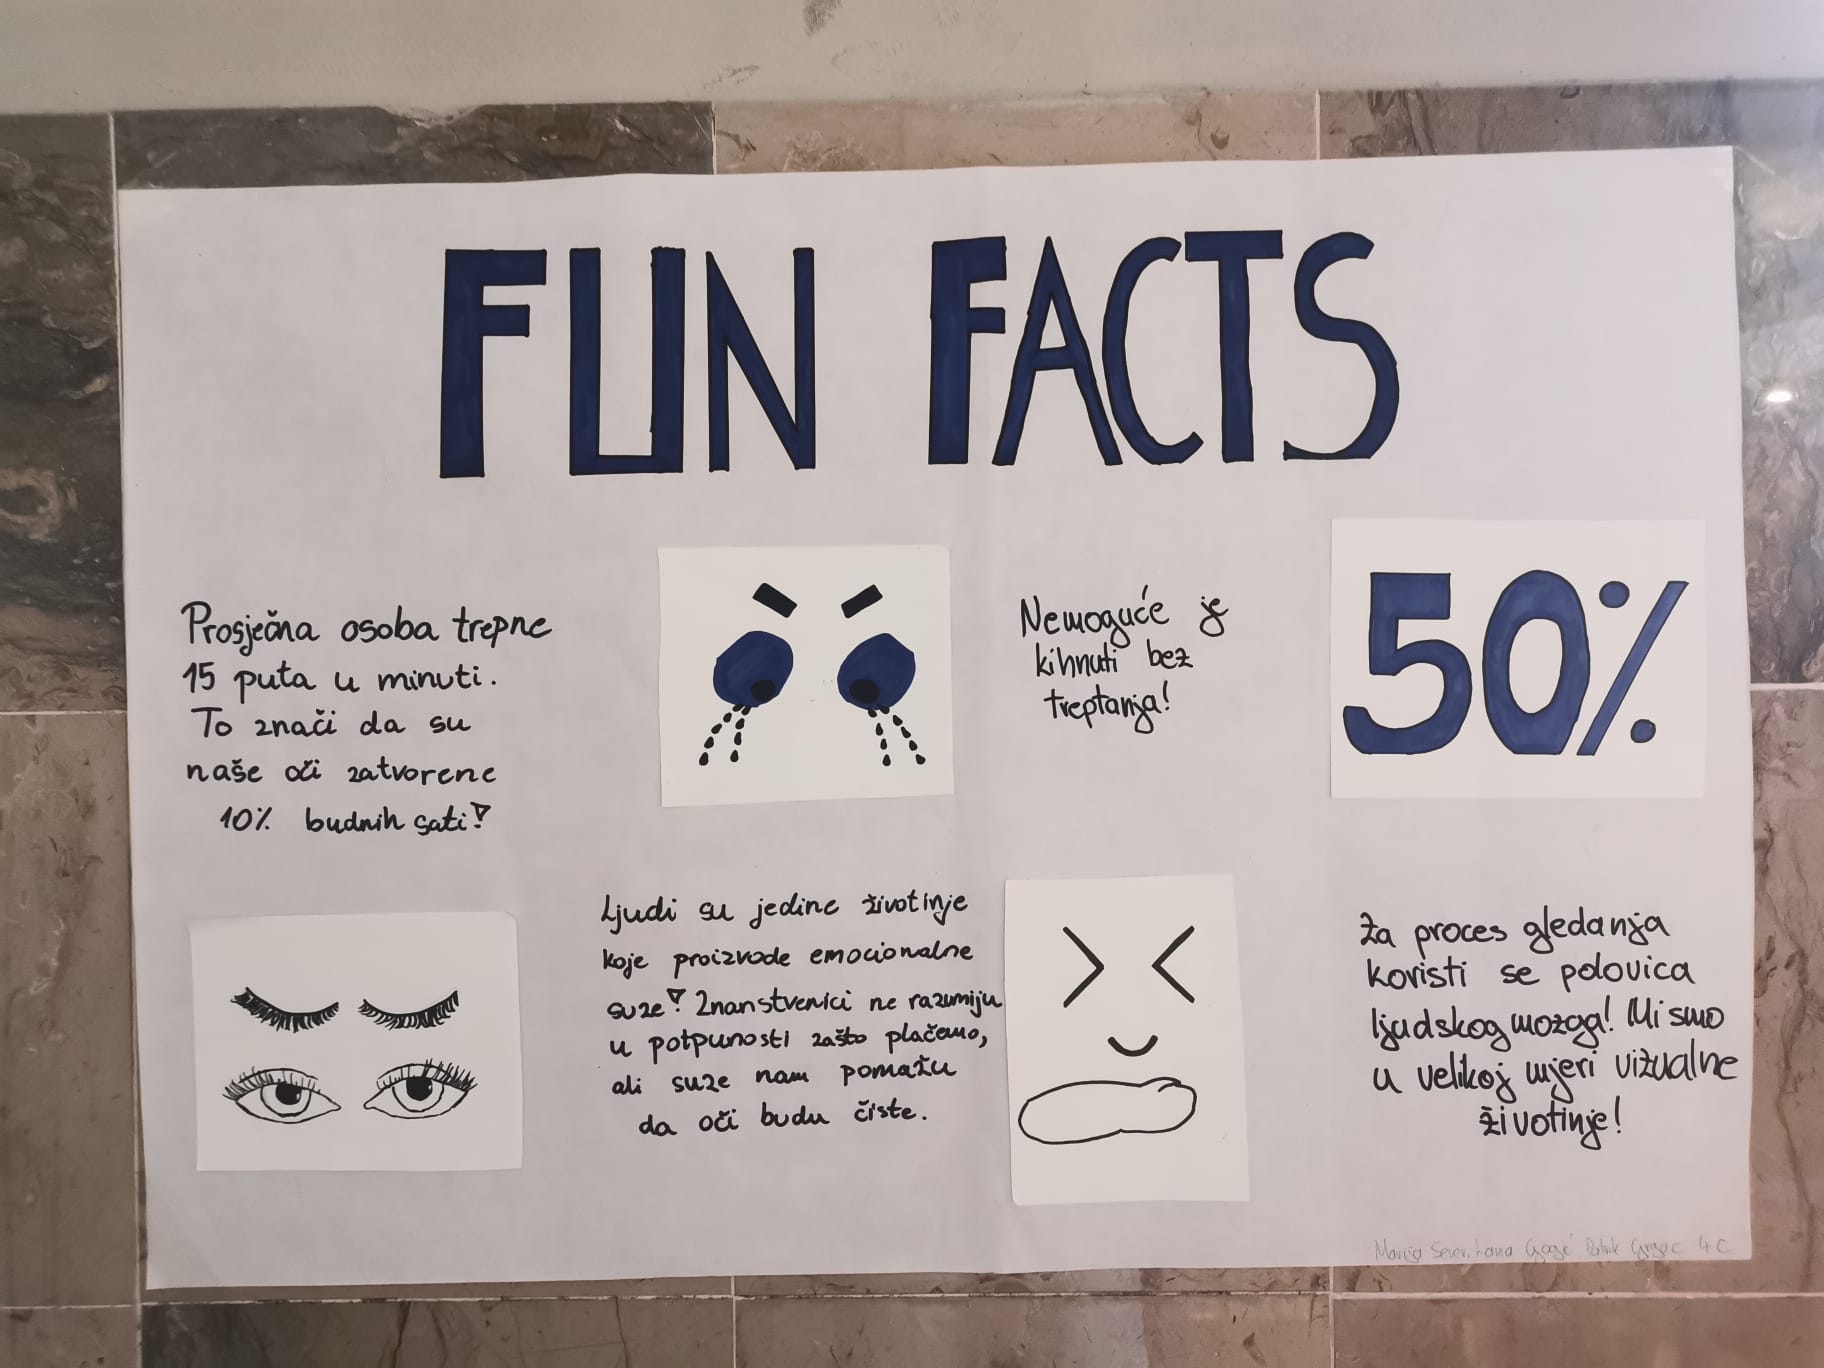 FUN FACTS
Prosječna osoba trepne
15 puta u minuti.
To znači da su
naše oči zatvorene
10% budnih sati!
Ljudi su jedine životinje
koje proizvode emocionalne
suze! Znanstvenici ne razumiju
u potpunosti zašto plačemo,
ali suze nam pomažu
da oči budu čiste.
Nemoguće je
kihnuti bez
treptanja!
50%
Za proces gledanja
koristi se polovica
ljudskog mozga! Mi smo
u velikoj mjeri vizualne
životinje!
Marija Sever, Lana Patrik 4.C